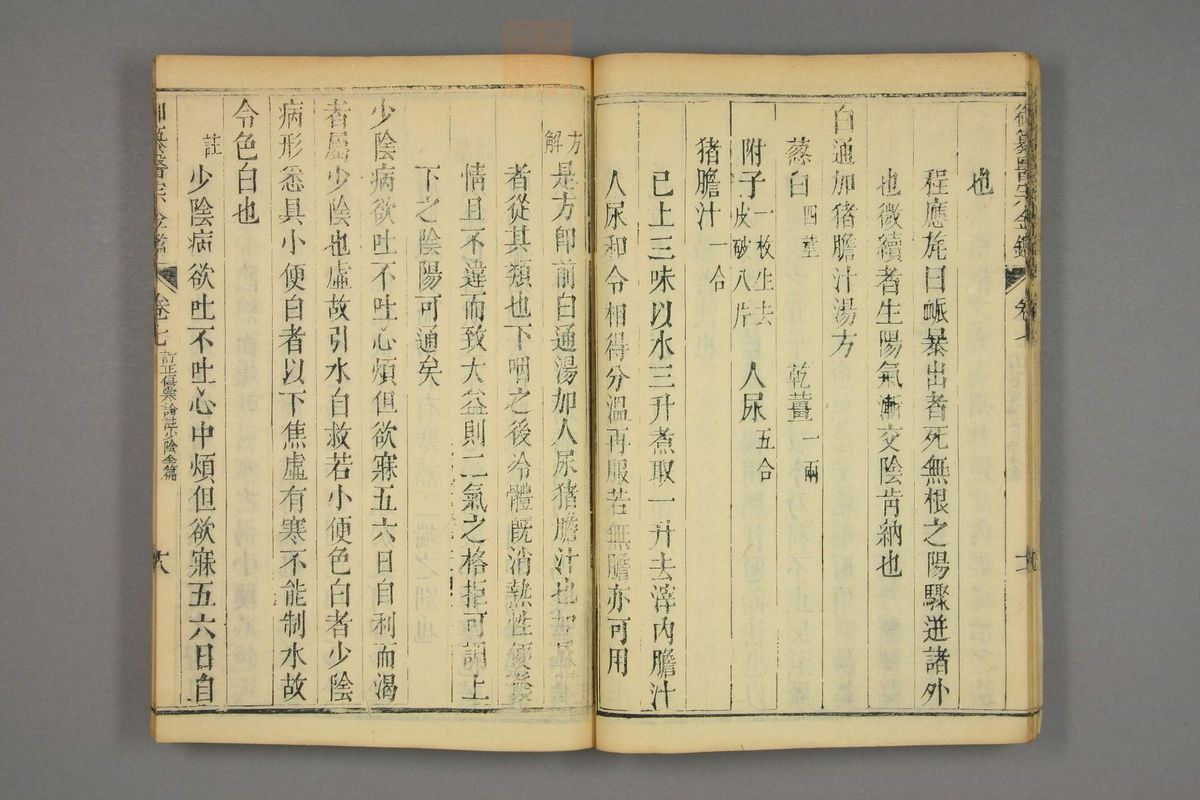 御纂醫宗金鑑 卷七
也
程應旄曰脈暴出者死無根之陽驟迸諸外
也微續者生陽氣漸交陰肯納也
白通加猪膽汁湯方
葱白四莖 乾薑一兩
附子一枚生去皮破八片 人尿五合
猪膽汁一合
已上三味以水三升煮取一升去滓內膽汁
人尿和令相得分溫再服若無膽亦可用
方解 是方卽前白通湯加人尿猪膽汁也加尿
者從其類也下咽之後冷體旣消熱性便發
情且不違而致大益則二氣之格拒可調上
下之陰陽可通矣
少陰病欲吐不吐心煩但欲寐五六日自利而渴
者屬少陰也虛故引水自救若小便色白者少陰
病形悉具小便白者以下焦虛有寒不能制水故
令色白也
註 少陰病欲吐不吐心中煩但欲寐五六日自
御纂醫宗金鑑 卷七 訂正傷寒論註少陰全篇